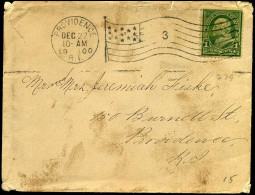 PROVIDENCE
DEC 27
10-AM
1900
R.I.
3
1
Mr and Mrs. Jeremiah Fiske,
150 Burnett St.
Providence,
R.I.
279
15